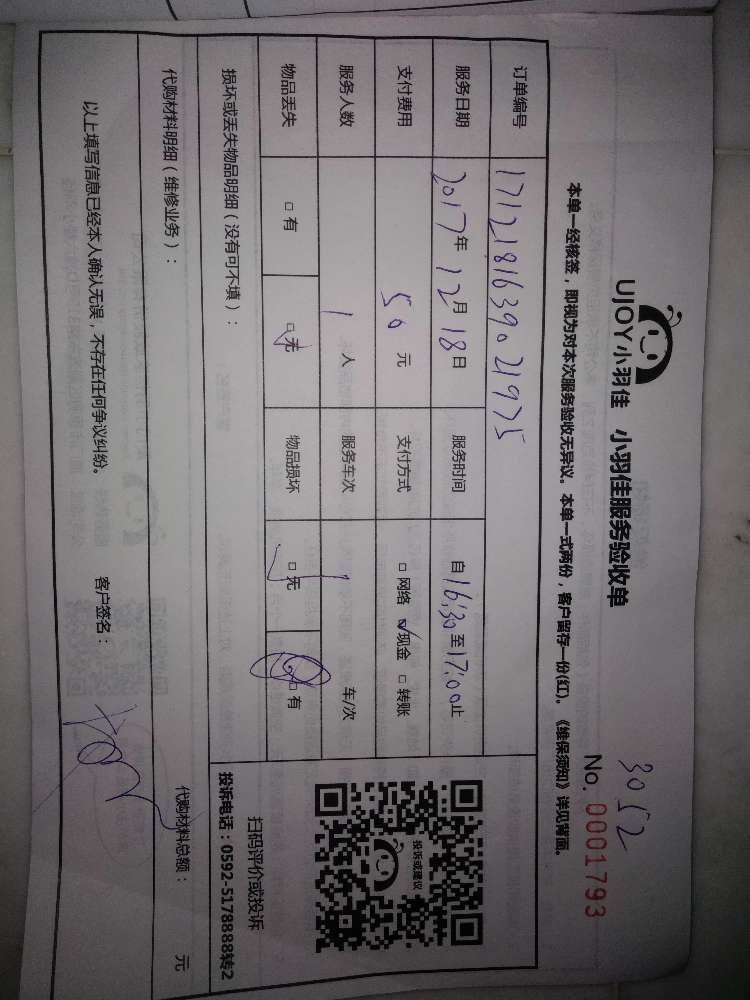 3052
UJOY小羽佳 小羽佳服务验收单 No. 0001793
本单一经核签，即视为对本次服务验收无异议。本单一式两份，客户留存一份(红)。《维保须知》详见背面。
订单编号 1712181639021975
服务日期 2017年12月18日 服务时间 自16:30至17:00止
支付费用 50元 支付方式 □网络 ☑现金 □转账
服务人数 1人 服务车次 车/次
物品丢失 □有 ☑无 物品损坏 ☑无 □有
投诉或建议
扫码评价或投诉
投诉电话：0592-5178888转2
损坏或丢失物品明细（没有可不填）：
代购材料明细（维修业务）： 代购材料总额： 元
以上填写信息已经本人确认无误，不存在任何争议纠纷。 客户签名：